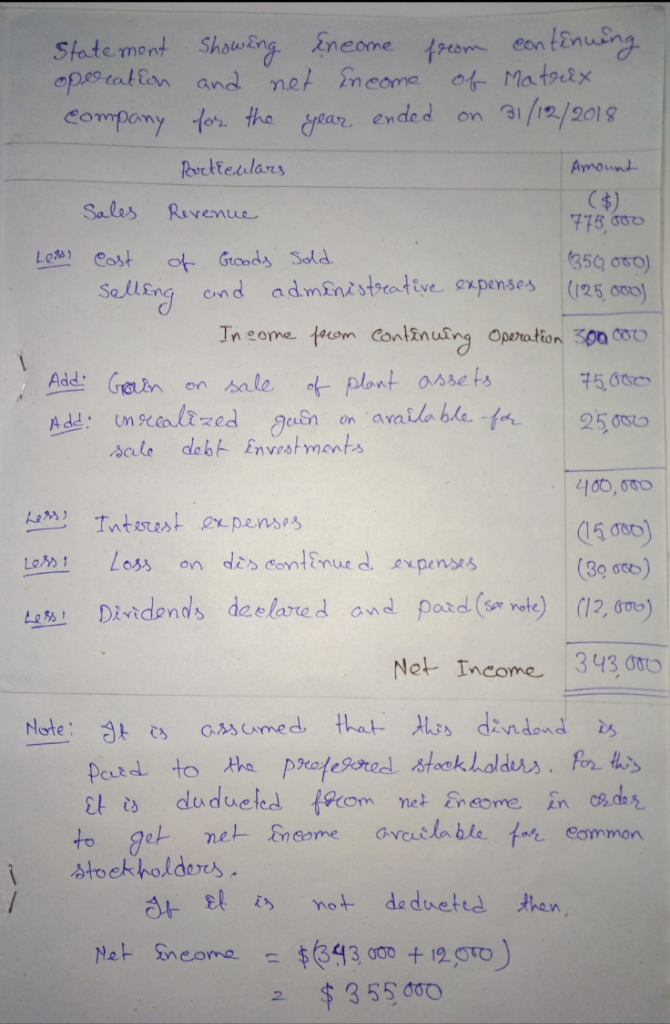 Statement Showing income from continuing
operation and net income of Matrix
company for the year ended on 31/12/2018
Particulars Amount
($)
Sales Revenue 775,000
Less: Cost of Goods Sold (350,000)
Selling and administrative expenses (125,000)
Income from Continuing Operation 300,000
Add: Gain on sale of plant assets 75,000
Add: unrealized gain on available-for 25,000
sale debt investments
400,000
Less: Interest expenses (15,000)
Less: Loss on discontinued expenses (30,000)
Less: Dividends declared and paid (see note) (12,000)
Net Income 343,000
Note: It is assumed that this dividend is
paid to the preferred stockholders. For this
it is duducted from net income in order
to get net income available for common
stockholders.
If it is not deducted then,
Net income = $(343,000 + 12,000)
= $355,000